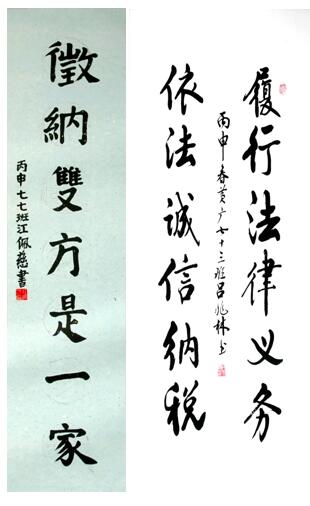 徵納雙方是一家
丙申七七班江佩慈書
履行法律义务
依法诚信纳税
丙申春七十三班吕兆林书